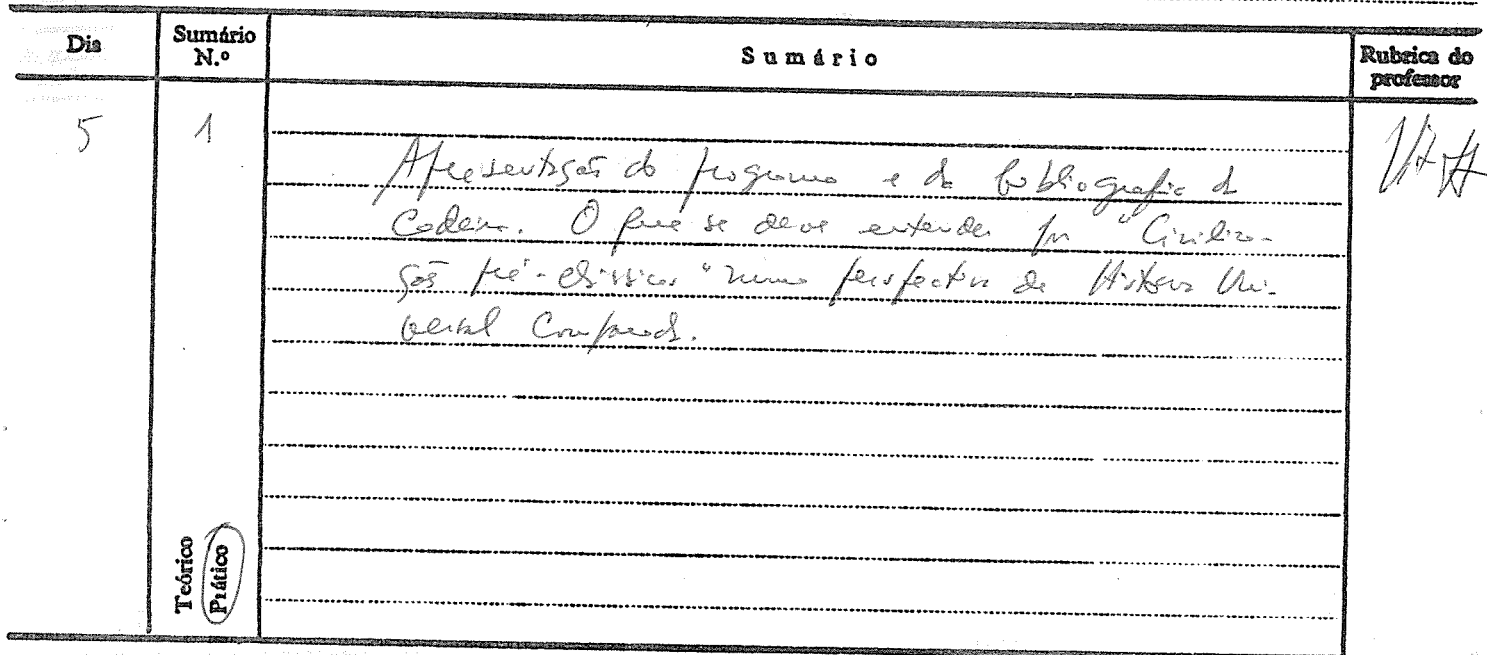 Dia
Sumário N.º
Sumário
Rubrica do professor
5
1
Apresentação do programa e da bibliografia da
Cadeira. O que se deve entender por "Civiliza-
ções pré-clássicas" numa perspectiva de História Uni-
versal Comparada.
Teórico
Prático